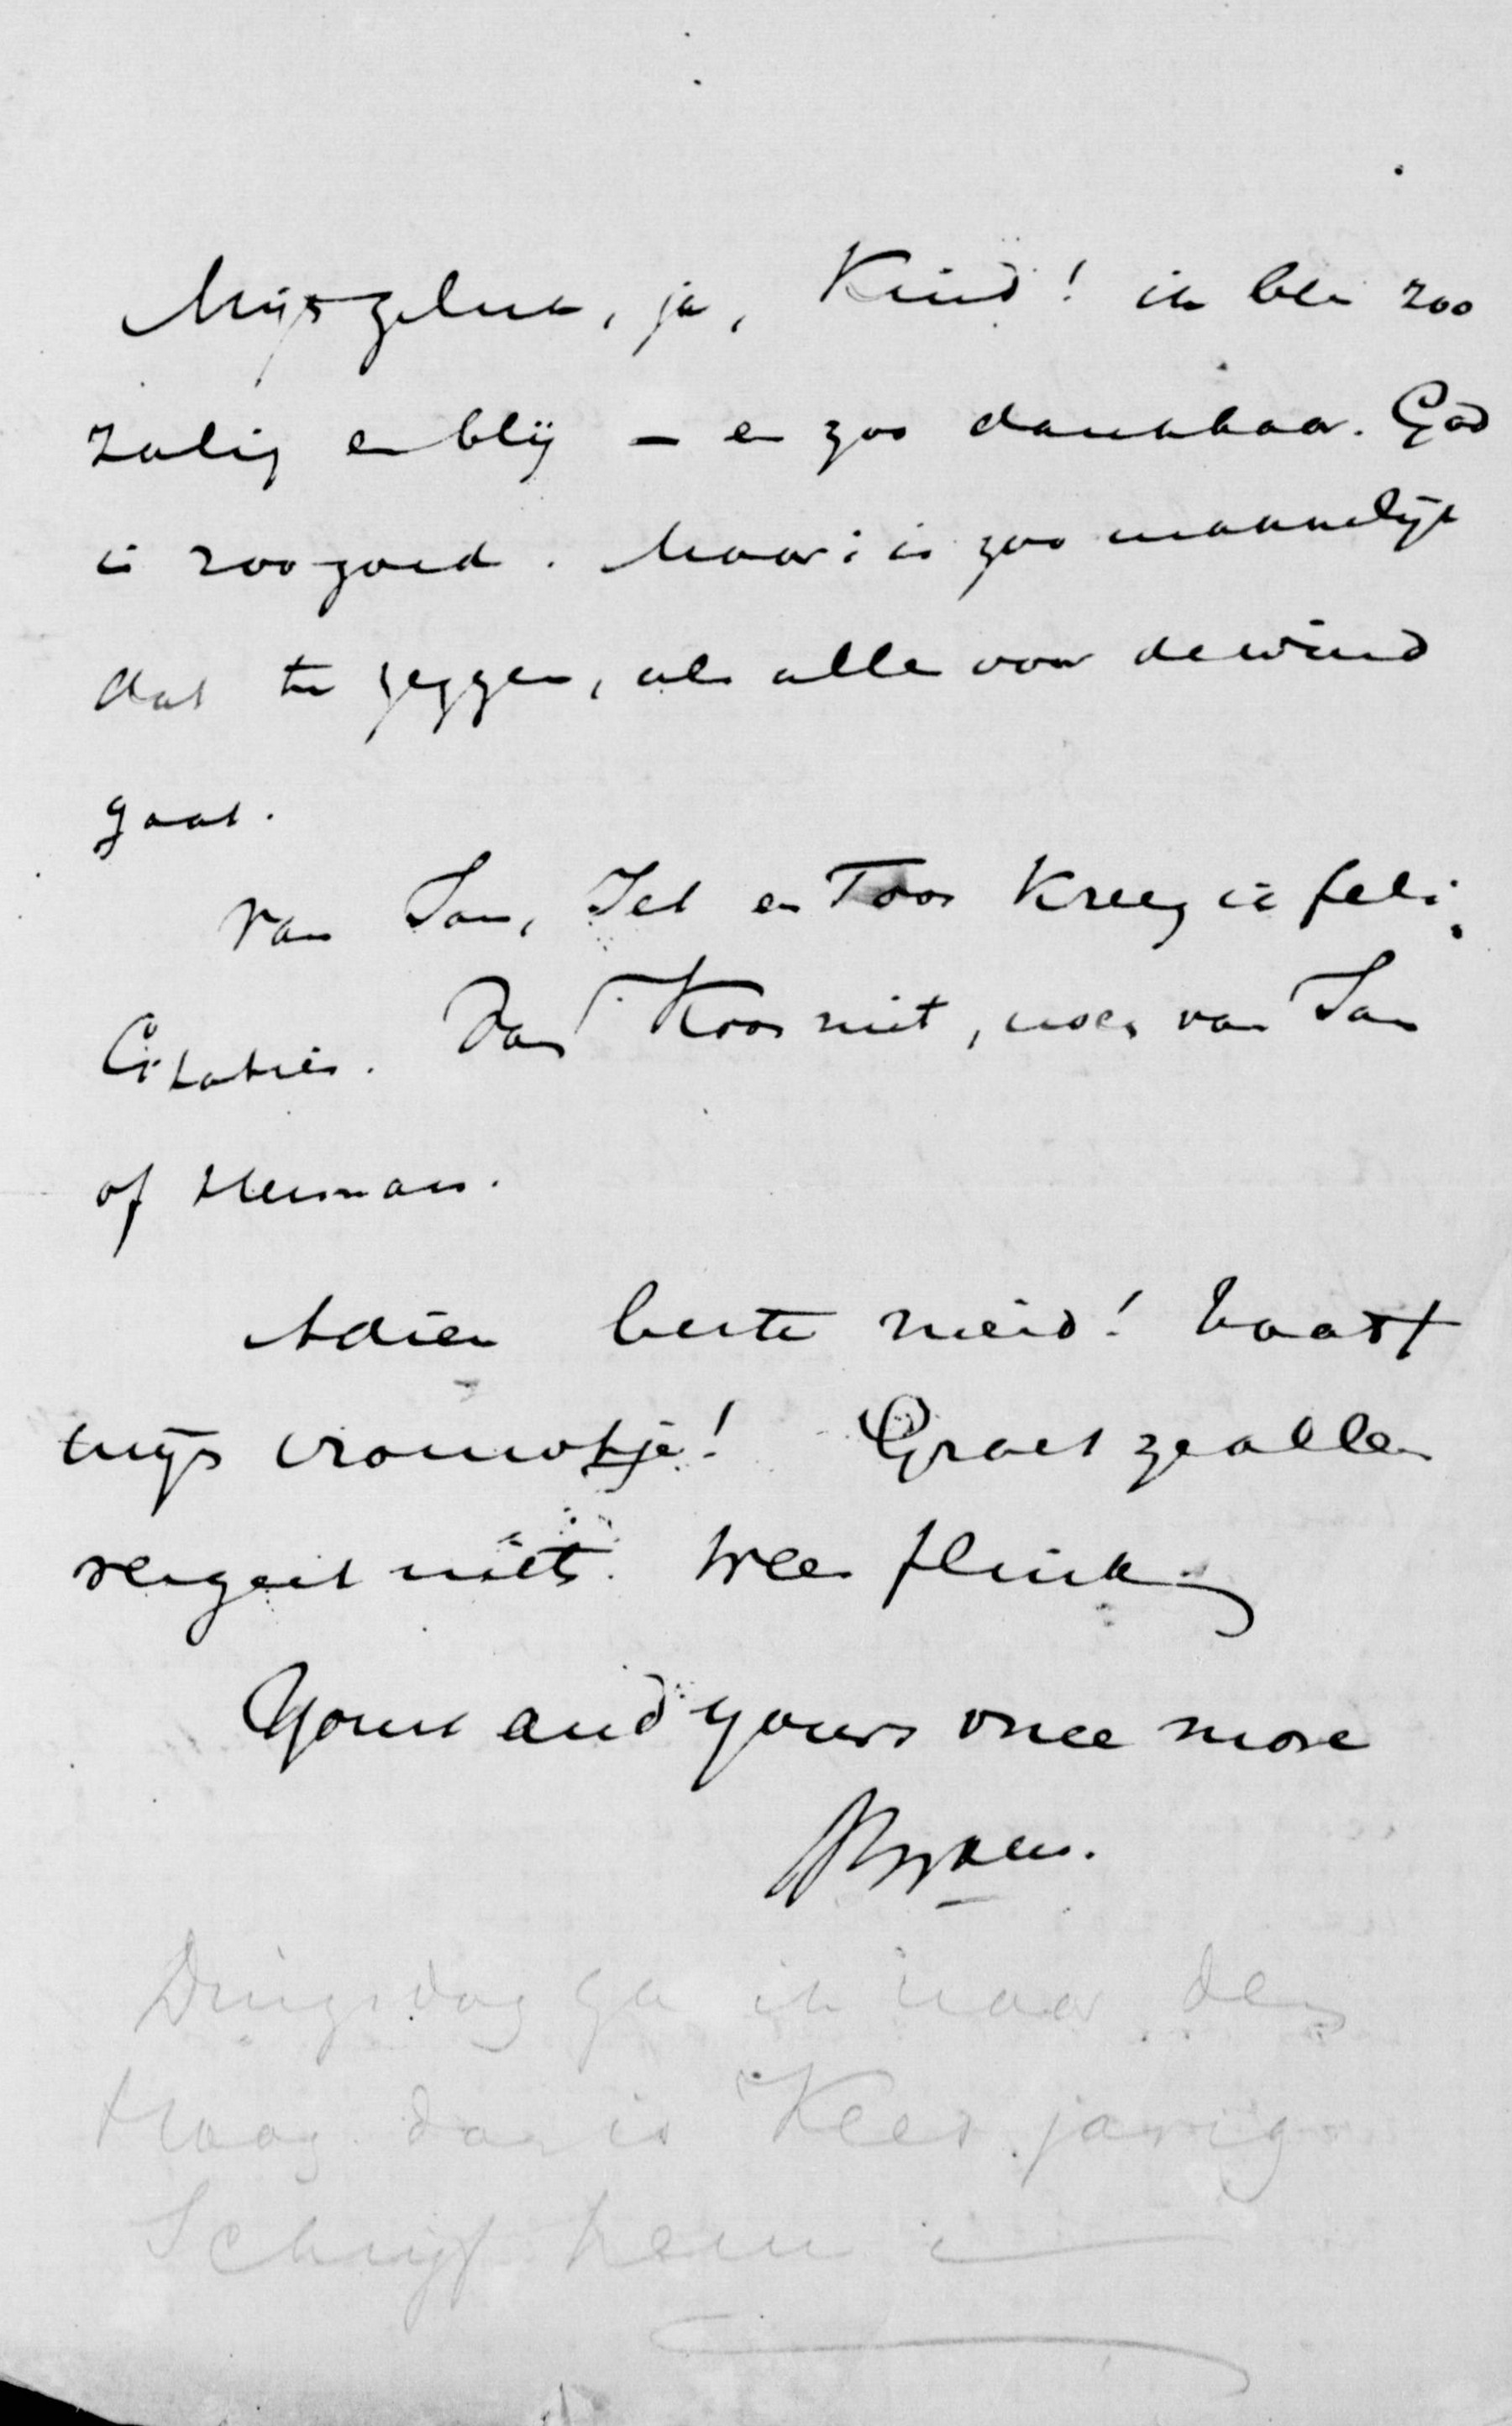 Mijn geluk, ja, Kind! ik ben zoo
zalig en blij – en zoo dankbaar. God
is zoo goed. Maar is zoo makkelijk
dat te zeggen, als alle voor de wind
gaat.
Van Jan, Jet en Toos kreeg ik feli-
citaties. Van Koos niet, noch van Jan
of Herman.
Adieu beste meid! haast
mijn vrouwtje! Groet ze allen
vergeet niets. Wees flink
Yours and yours once more
Dingsdag ga ik naar den
Haag dan is Kees jarig
Schrijf hem